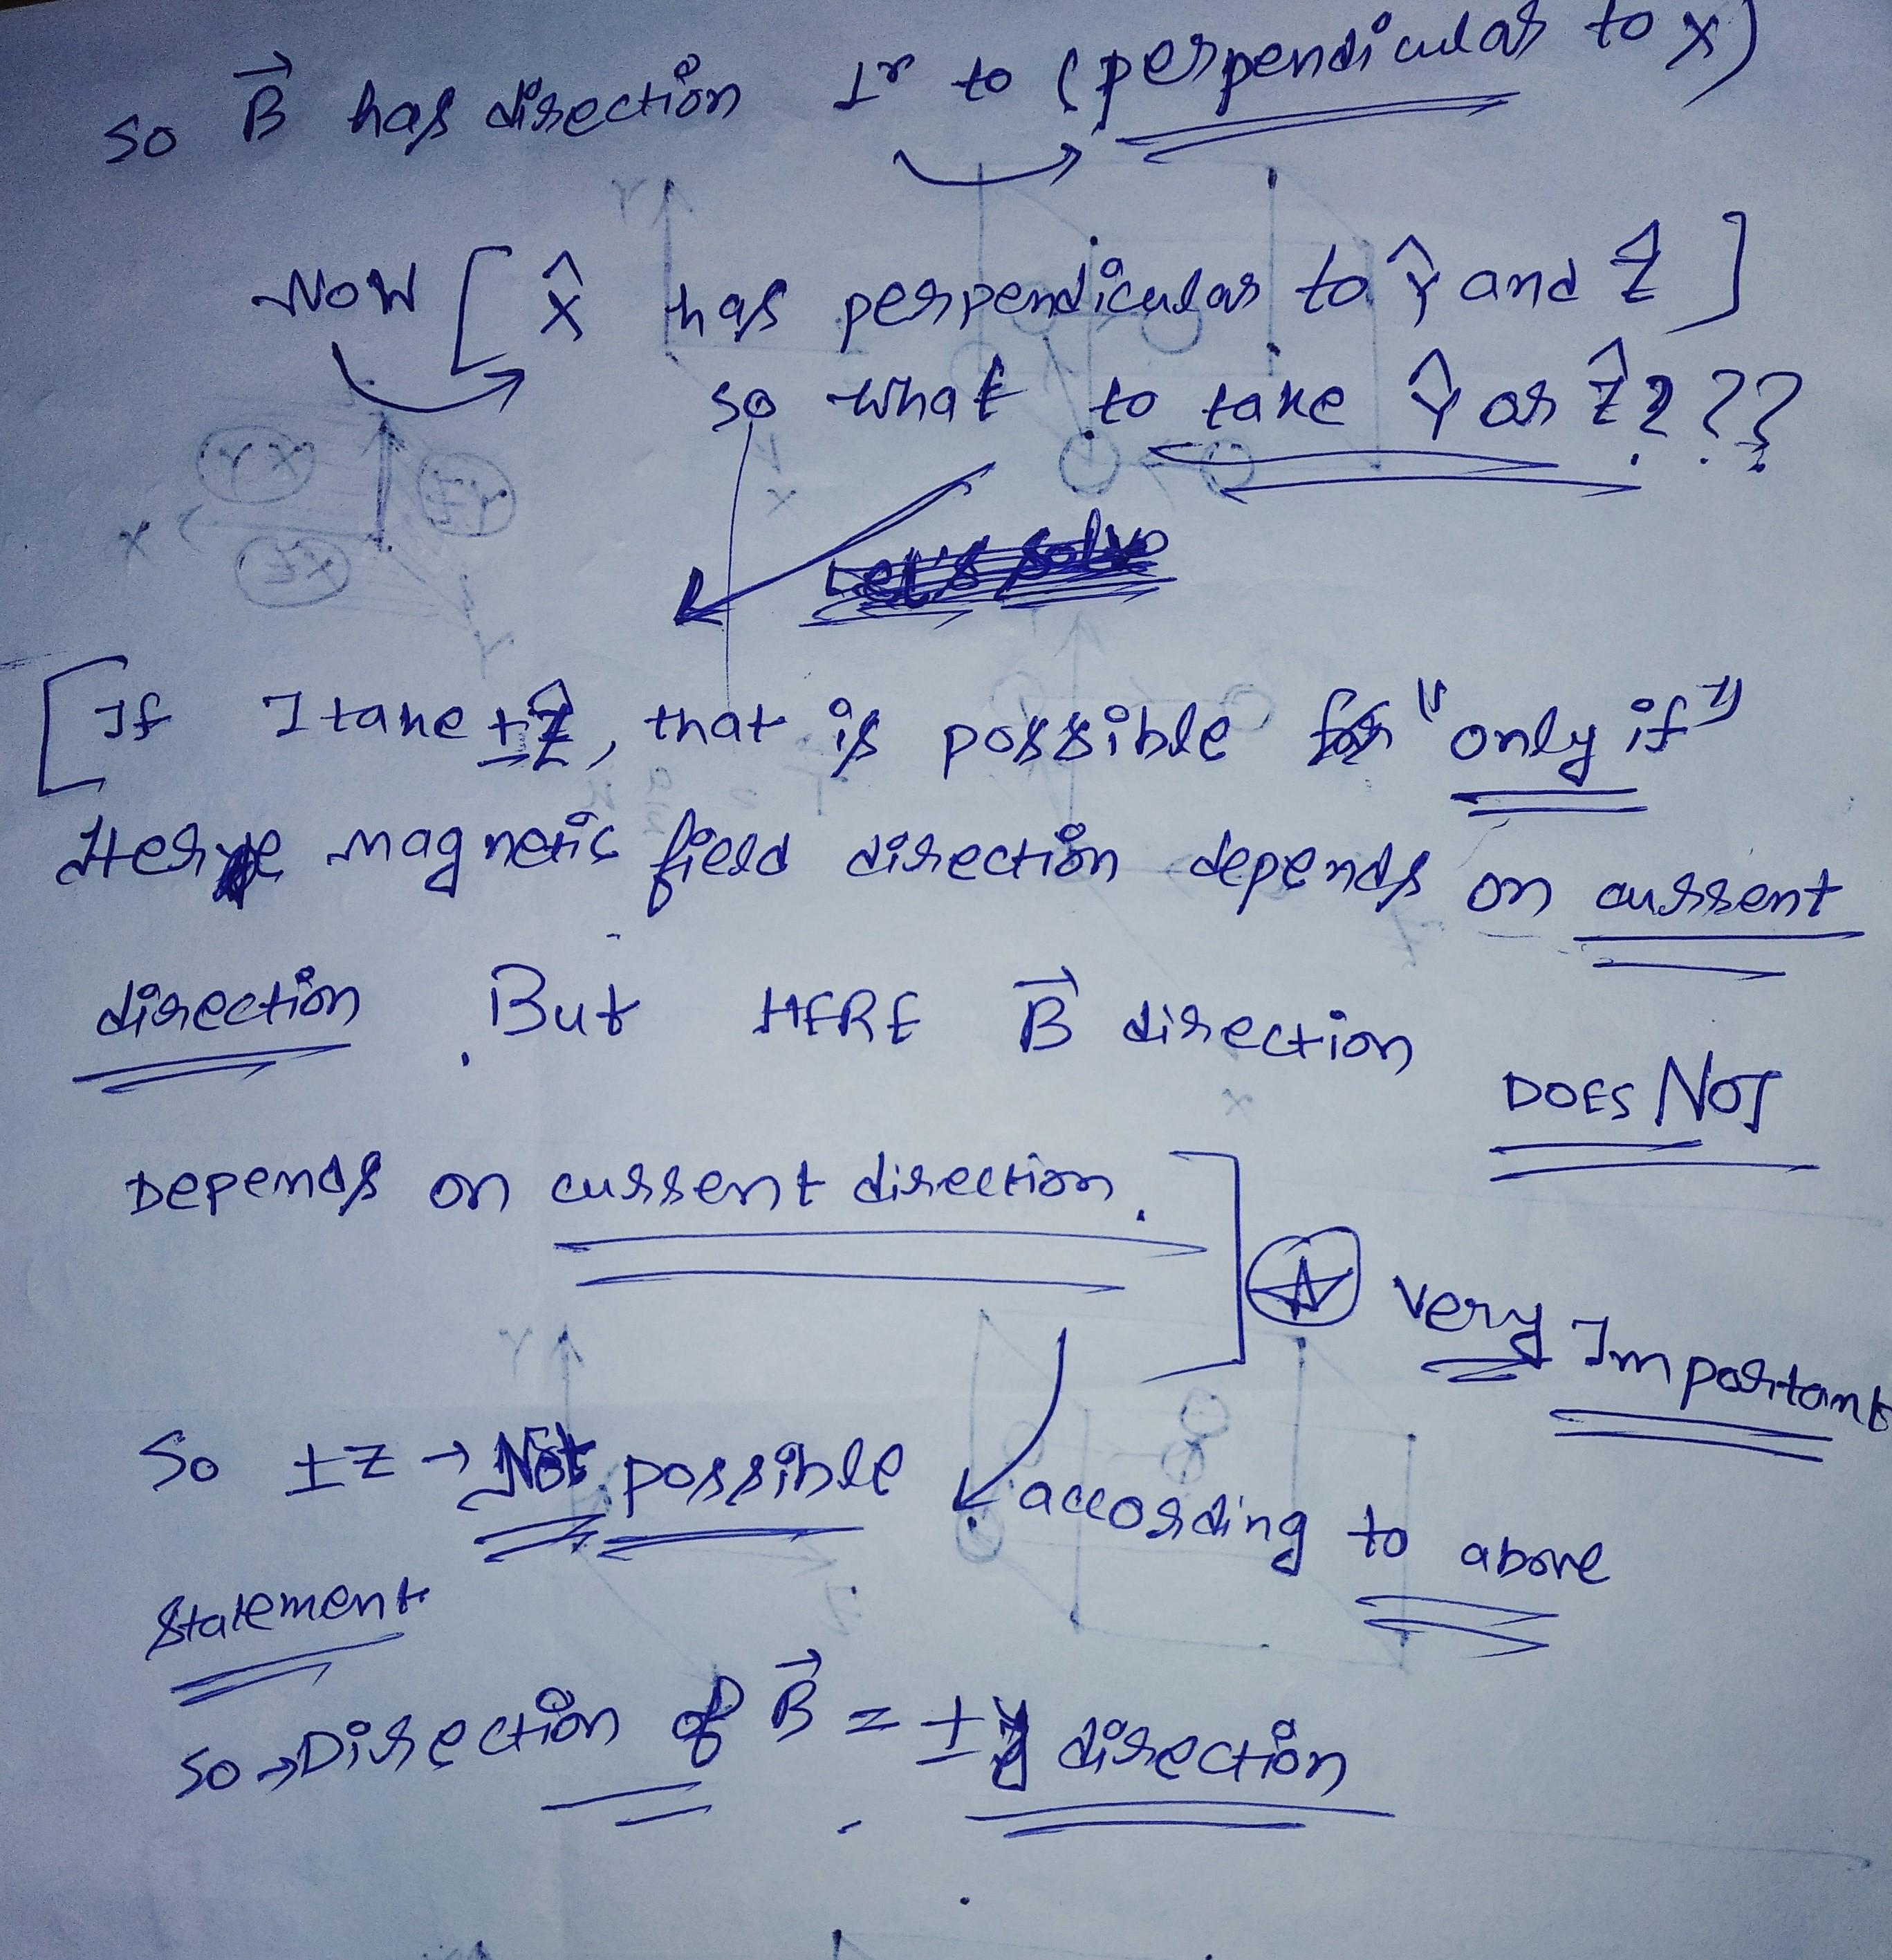 So B⃗ has direction ⊥r to (perpendicular to x)
Now [ X̂ has perpendicular to Ŷ and Ẑ ]
so what to take Ŷ or Ẑ ???
Let's solve
[ If I take ±Ẑ, that is possible for "only if"
Here magnetic field direction depends on current
direction. But HERE B⃗ direction DOES NOT
Depends on current direction. ]
Very Important
So ±Z → Not possible according to above
statement
So → Direction of B⃗ = ±y direction